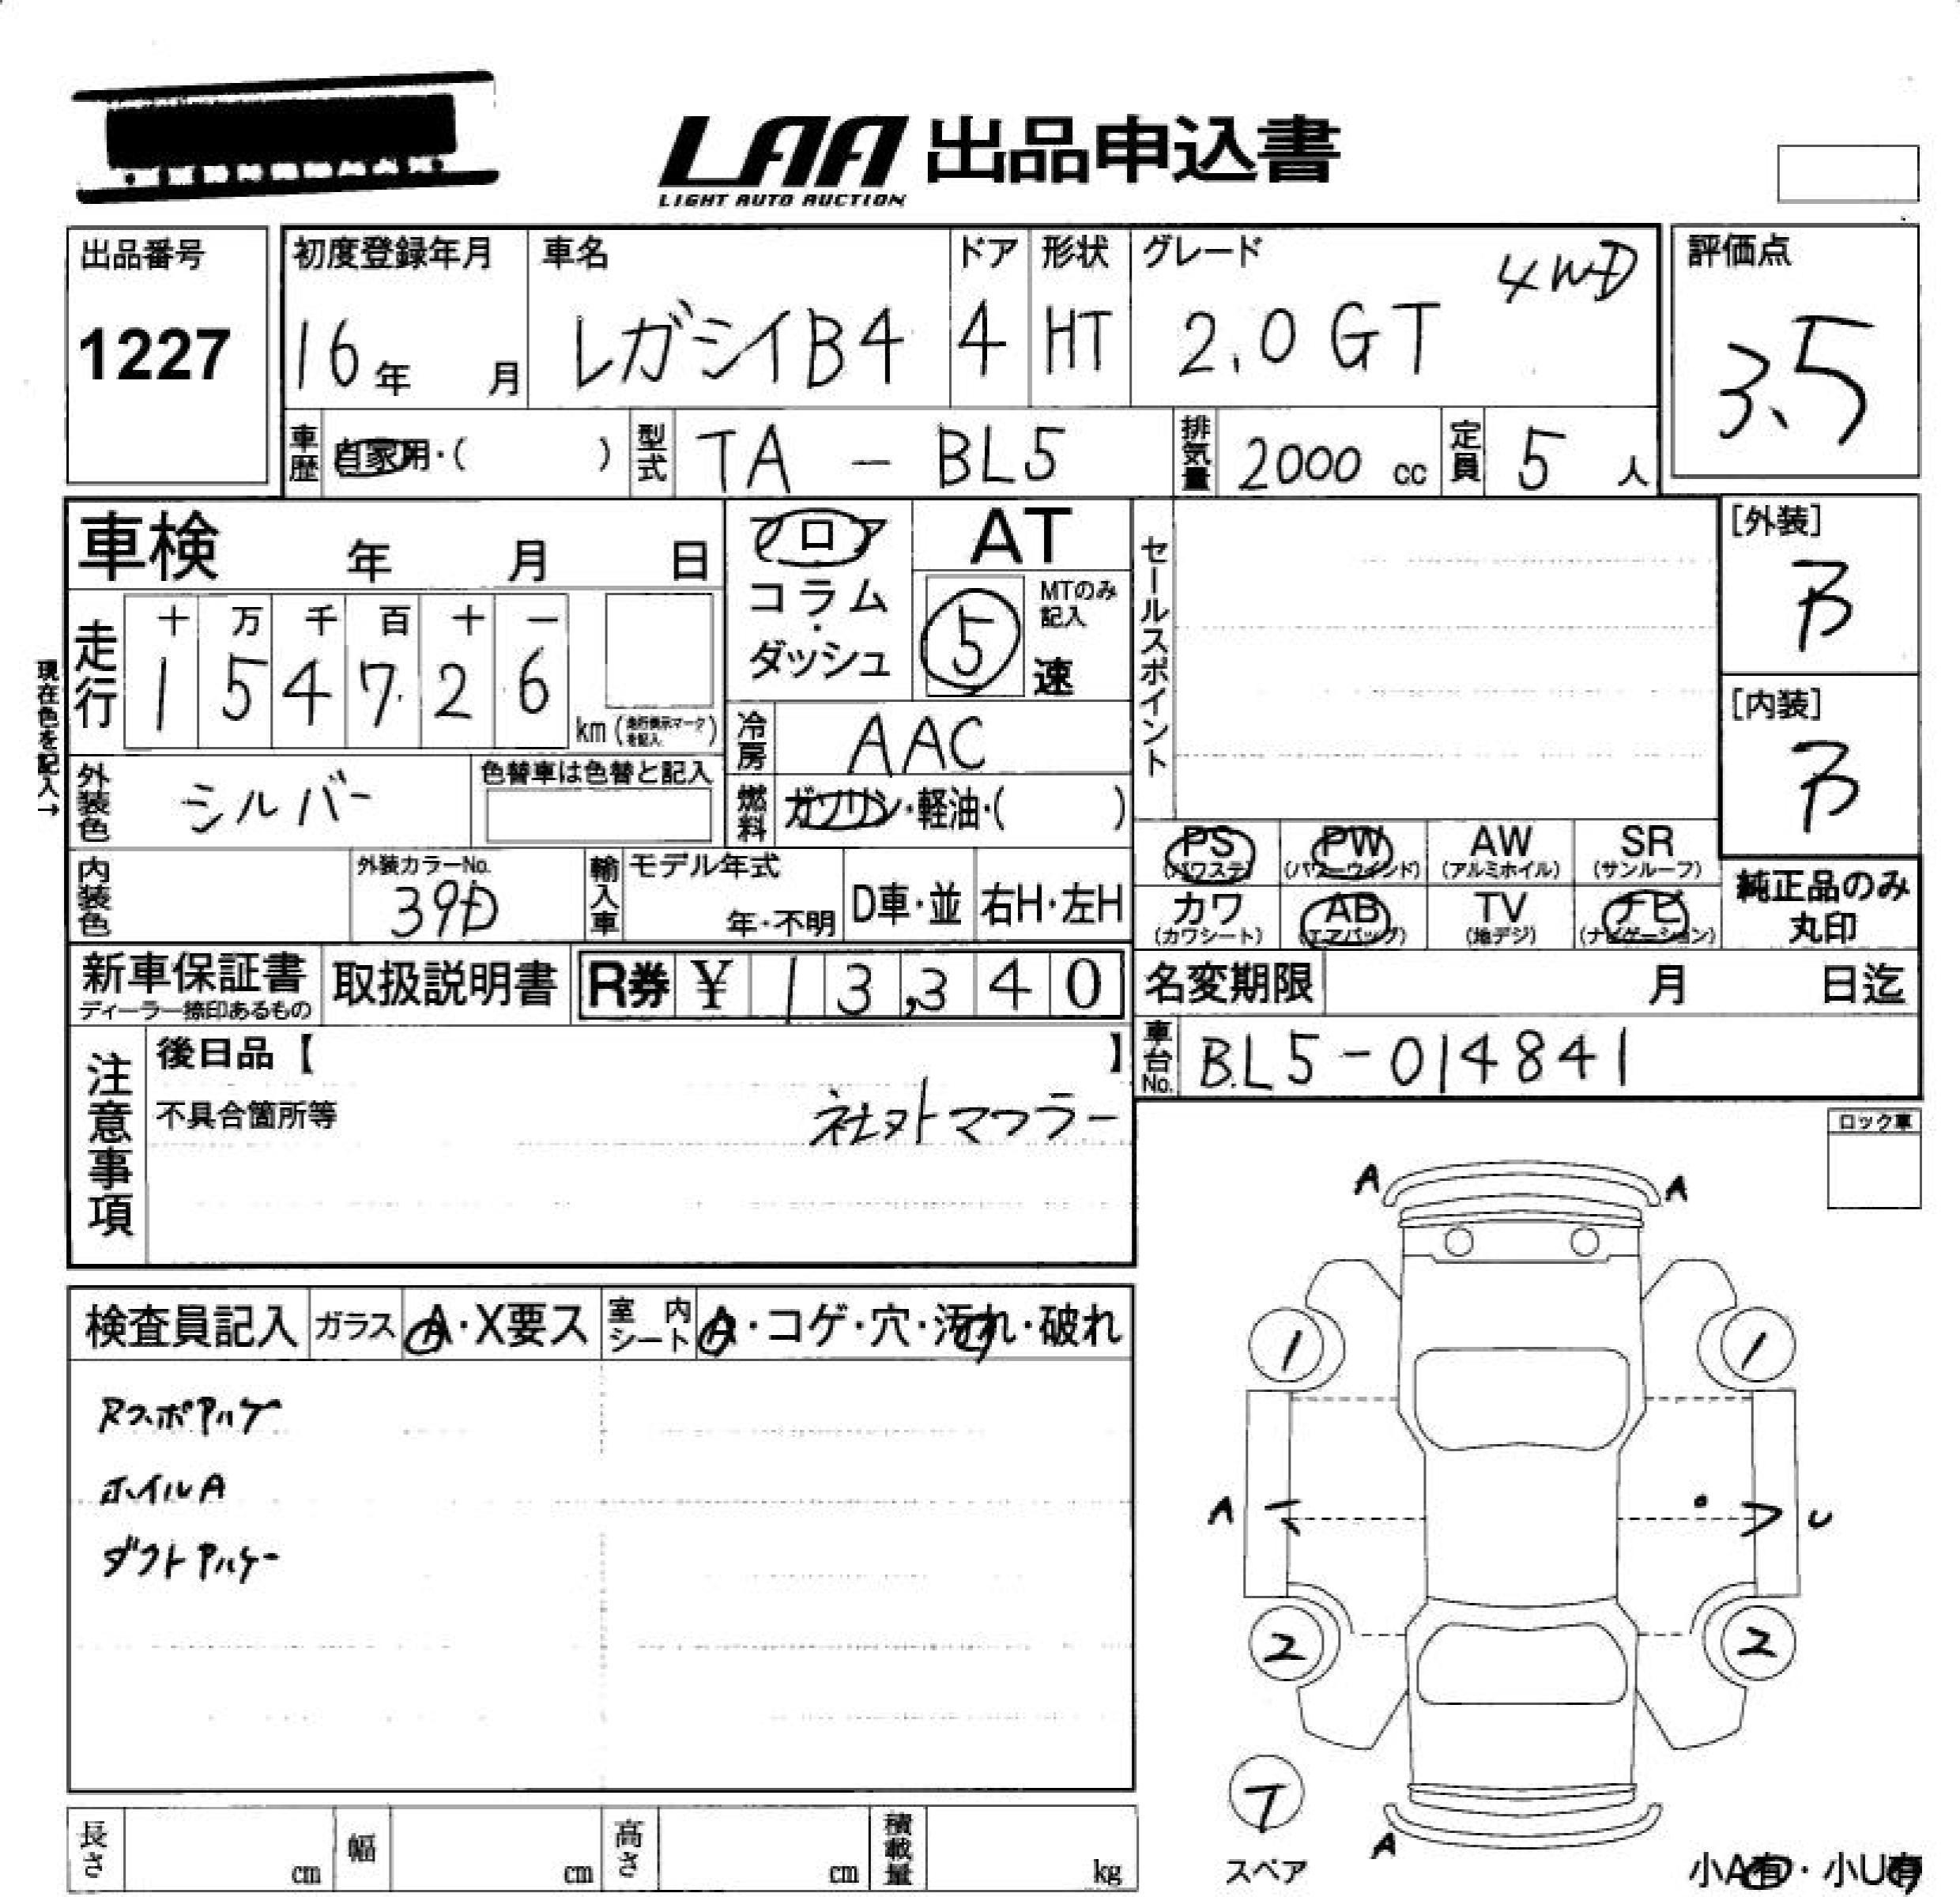 LAA 出品申込書
LIGHT AUTO AUCTION
出品番号
1227
初度登録年月
16年 月
車名
レガシイB4
ドア
4
形状
HT
グレード
4WD
2.0GT
評価点
3.5
車歴 自家用・( )
型式 TA - BL5
排気量 2000 cc
定員 5 人
車検 年 月 日
フロア
コラム
・
ダッシュ
AT
5 速
MTのみ
記入
セールスポイント
[外装]
B
[内装]
B
現在色を記入→
走行
十 万 千 百 十 一
1 5 4 7 2 6
km (走行表示マークを記入)
冷房 AAC
燃料 ガソリン・軽油・( )
外装色 シルバー
色替車は色替と記入
内装色
外装カラーNo.
39D
輸入車
モデル年式
年・不明
D車・並
右H・左H
PS
(パワステ)
PW
(パワーウインド)
AW
(アルミホイル)
SR
(サンルーフ)
カワ
(カワシート)
AB
(エアバッグ)
TV
(地デジ)
ナビ
(ナビゲーション)
純正品のみ
丸印
新車保証書
ディーラー捺印あるもの
取扱説明書
R券 ¥ 13,340
名変期限 月 日迄
車台No. BL5-014841
注意事項
後日品【 】
不具合箇所等
社外マフラー
ロック車
検査員記入
ガラス A・X要ス
室内シート A・コゲ・穴・汚れ・破れ
ホイルA
A A
1 1
A U
2 2
T
スペア
A
小A有・小U有
長さ cm
幅 cm
高さ cm
積載量 kg